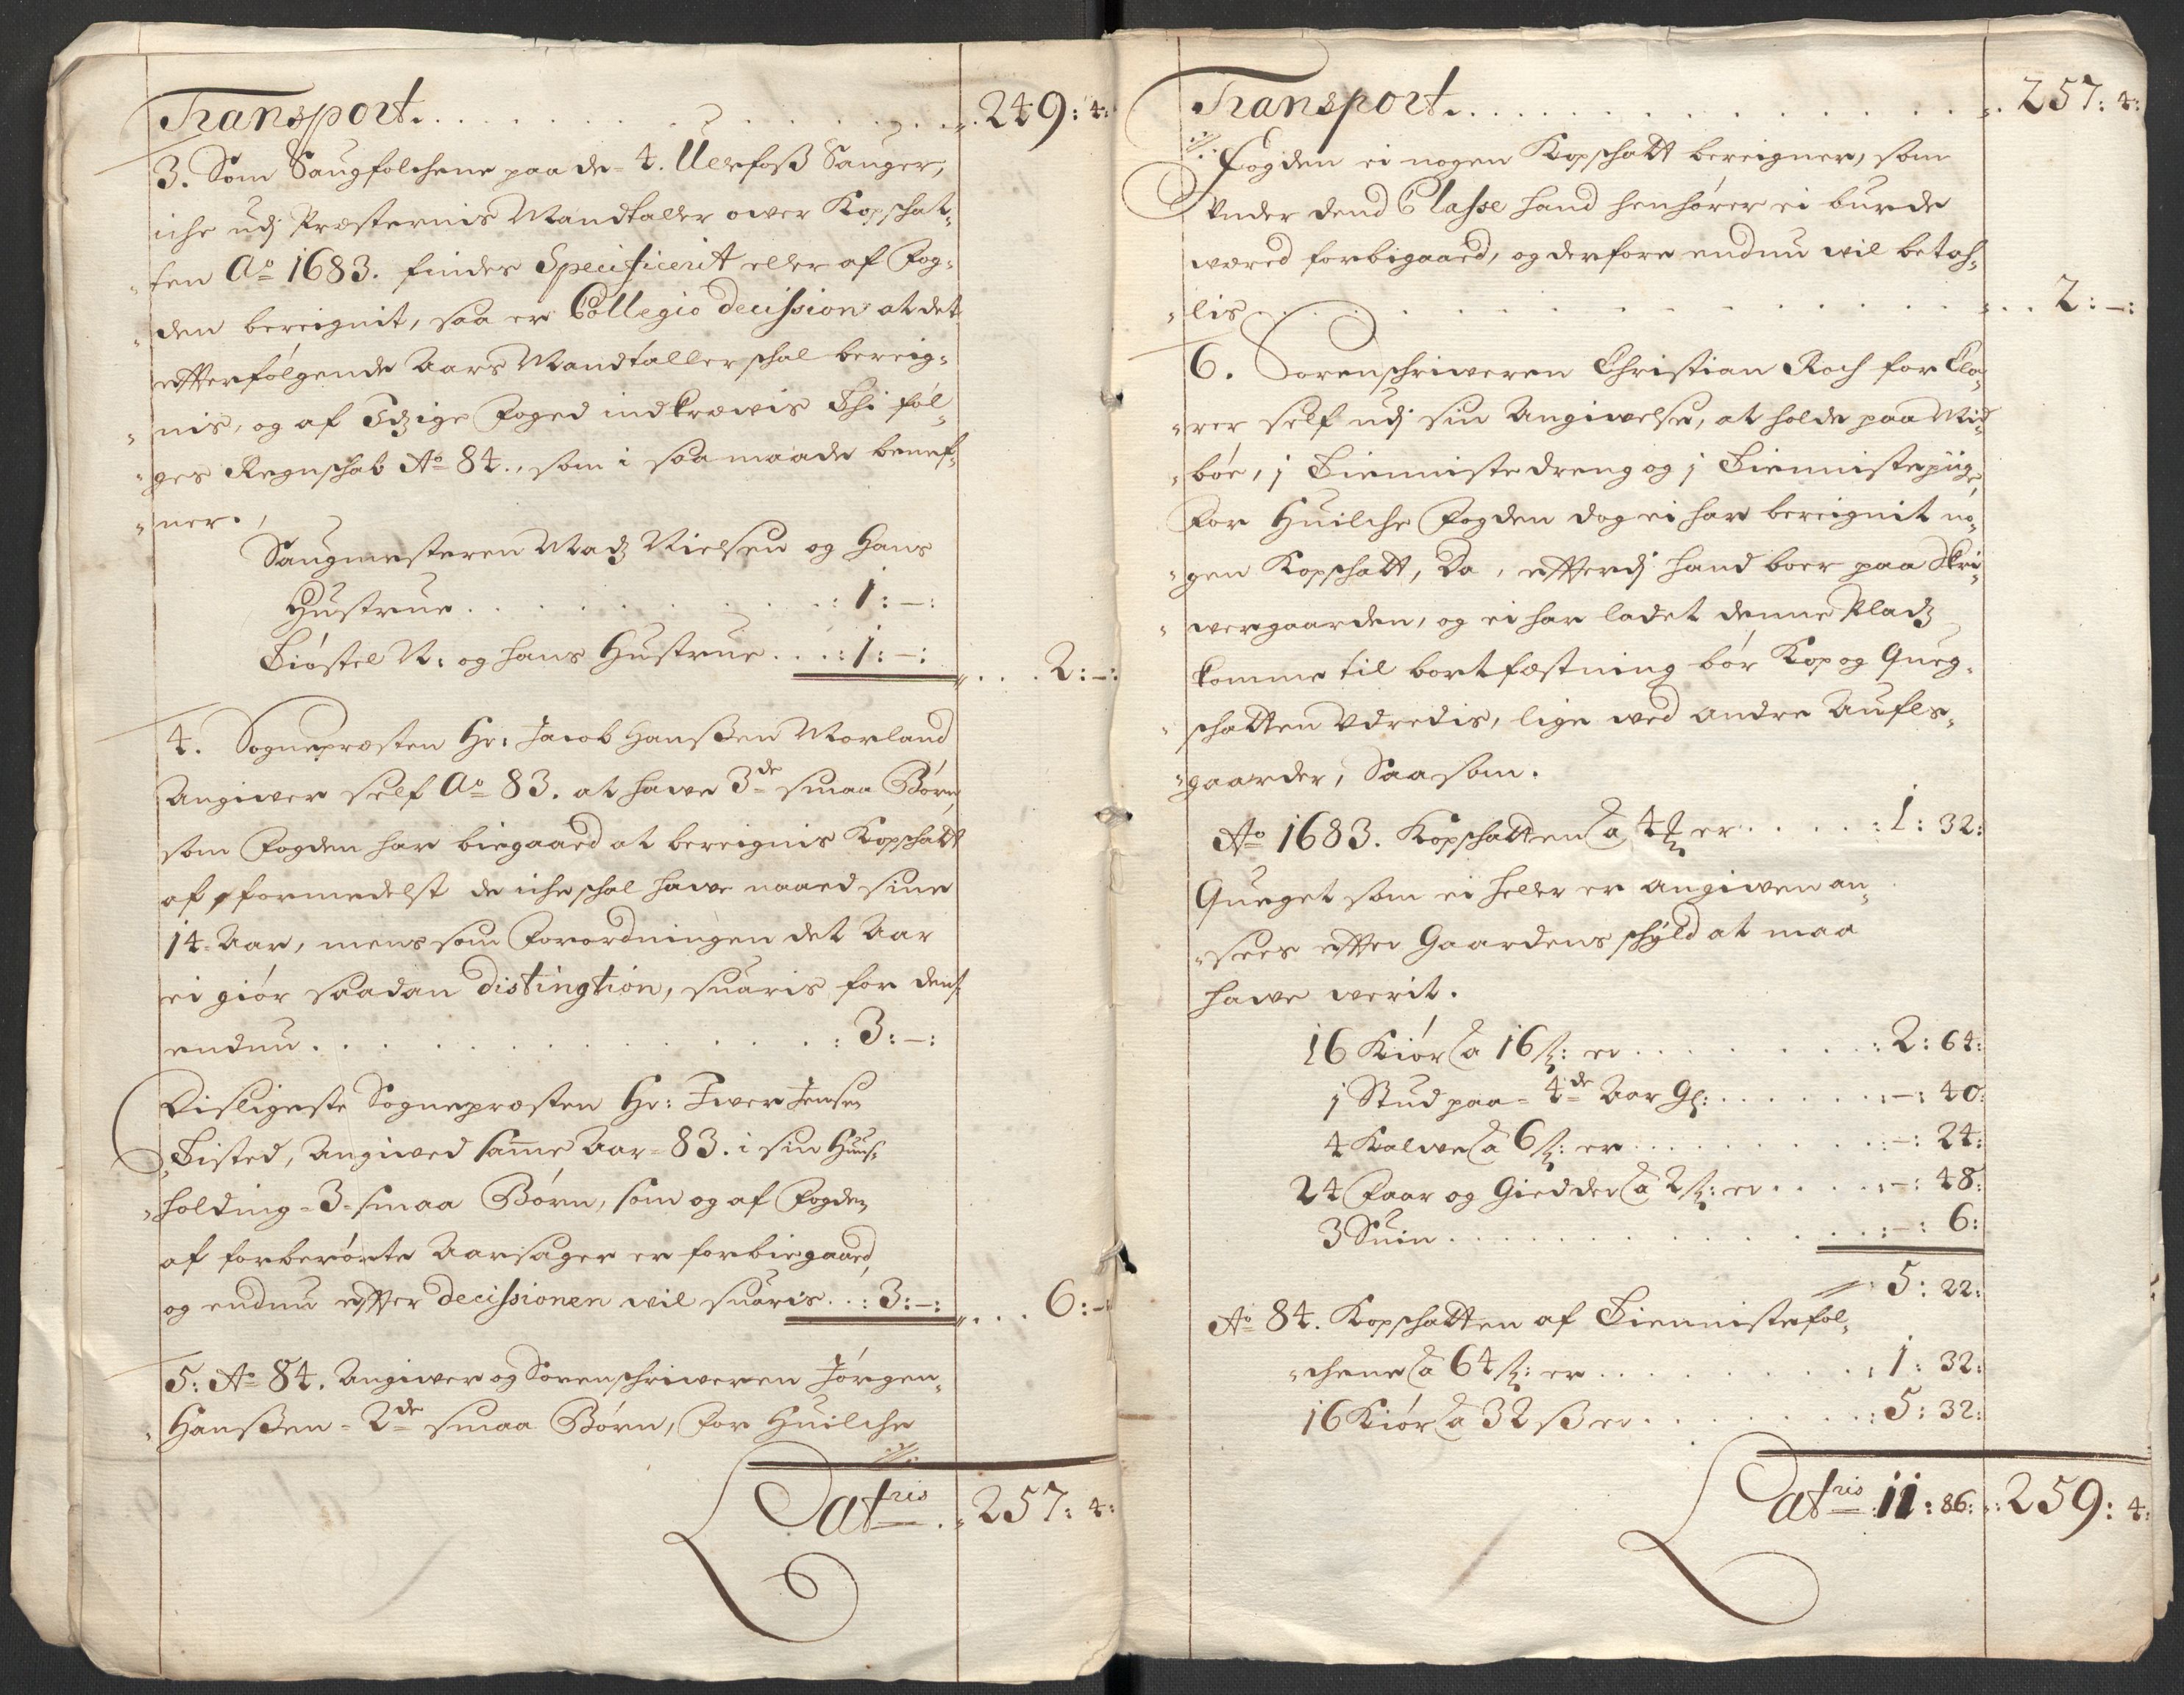 Transport. . . . . . . . . . 249: 4:
3. Som Saugfolchene paa de 4. Ulefoss Sauger,
iche udj Præsternis Mandtaller over Kopschat-
ten Ao 1683. findes Specificerit eller af Fog-
den bereignit, saa er Collegio decission at det
efterfølgende Aars Mandtaller schal bereig-
nis, og af Itzige Foged indkrævis Thi føl-
ges Regnschab Ao 84., som i saa maade benef-
ner.
Saugmesteren Madz Nielsen og Hans
Hustrue . . . . . . : 1: -:
Kiøstel N: og hans Hustrue . . . : 1: -: . . . 2: -:
4. Sognepræsten Hr: Jacob Hanssen Morland
Angiver self Ao 83. at have 3de smaa Børn,
som Fogden har biegaaed at bereignis Kopschatt
af, formedelst de iche schal have naaed sine
14 Aar, mens som Forordningen det Aar
ei giør saadan distingtion, suaris for dem
endnu . . . . . . . . : 3: -:
Disligeste Sognepræsten Hr: Iver Jensen
Tisted, Angived samme Aar 83. i sin Huus-
holding 3 smaa Børn, som og af Fogden
af forberørte Aarsager er forbiegaaed,
og endnu efter decissionen vil suaris . . : 3: -: . . . 6: -:
5: Ao 84. Angiver og Sorenschriveren Jørgen
Hanssen 2de smaa Børn, for Huilche
Latris . 257: 4:
Transport. . . . . . . . . . 257: 4:
Fogden ei nogen Kopschatt bereigner, som
under dend Classe hand henhører ei burde
været forbigaaed, og derfore endnu vil betah-
lis . . . . . . . . . . 2: -:
6. Sorenschriveren Christian Roch for Cla-
rer self udj sin Angivelse, at holde paa Mid-
bøe, 1 Tienniste dreng og 1 Tiennistepiige,
For Huilche Fogden dog ei har bereignit no-
gen Kopschatt, Da, efterdj hand boer paa Skri-
vergaarden, og ei har ladet denne Pladz
komme til bortfæstning bør Kop og Queg-
schatten Udredis, lige ved andre Aufls-
gaarder, Saasom.
Ao 1683. Kopschatten à 4 er . . . . : 1: 32:
Queget som ei heller er angiven an-
sees efter Gaardens schyld at maa
have verit.
16 Kiør à 16 s: er . . . . . . : 2: 64:
1 Stud paa 4de Aar Gl: . . . . . . : -: 40:
4 Kalve à 6 s: er . . . . . . . : -: 24:
24 Faar og Giedder à 2 s: er . . . . : -: 48:
3 Suin . . . . . . . . . : -: 6:
5: 22:
Ao 84. Kopschatten af Tiennistefol-
chene à 64 s: er . . . . . . : 1: 32:
16 Kiør à 32 ss er . . . . . . : 5: 32:
Latris 11: 86: . 259: 4: